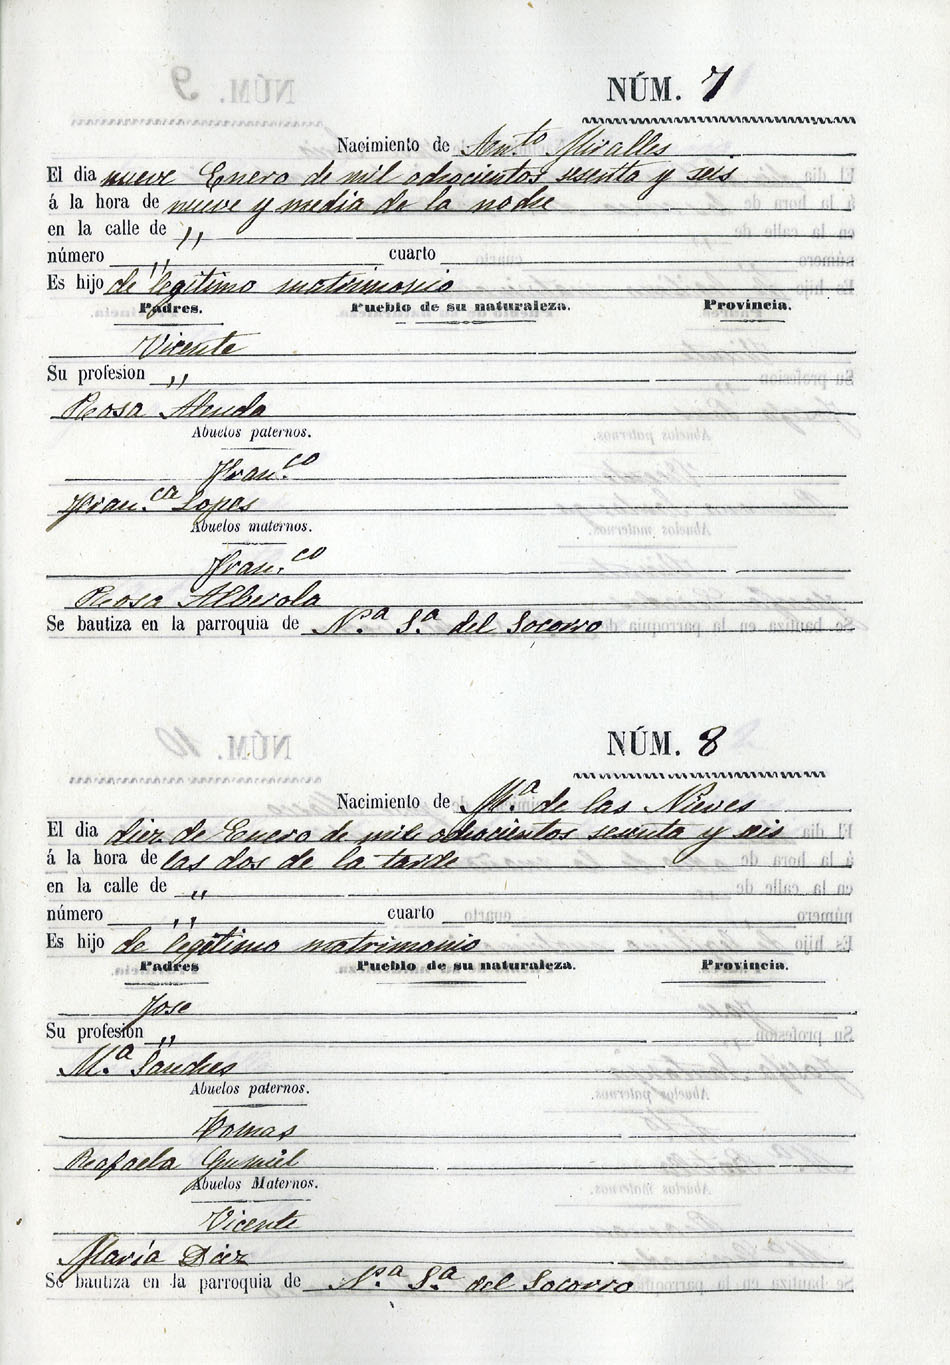 NÚM. 7
Nacimiento de Ant.to Miralles
El dia nueve Enero de mil ochocientos sesenta y seis
á la hora de nueve y media de la noche
en la calle de "
número " cuarto
Es hijo de legitimo matrimonio
Padres. Pueblo de su naturaleza. Provincia.
Vicente
Su profesion "
Rosa Alenda
Abuelos paternos.
Fran.co
Fran.ca Lopes
Abuelos maternos.
Fran.co
Rosa Alberola
Se bautiza en la parroquia de N.a S.a del Socorro
NÚM. 8
Nacimiento de M.a de las Nieves
El dia diez de Enero de mil ochocientos sesenta y seis
á la hora de las dos de la tarde
en la calle de "
número " cuarto
Es hijo de legitimo matrimonio
Padres Pueblo de su naturaleza. Provincia.
Jose
Su profesion "
M.a Sanches
Abuelos paternos.
Tomas
Rafaela Gumiel
Abuelos Maternos.
Vicente
María Diez
Se bautiza en la parroquia de N.a S.a del Socorro